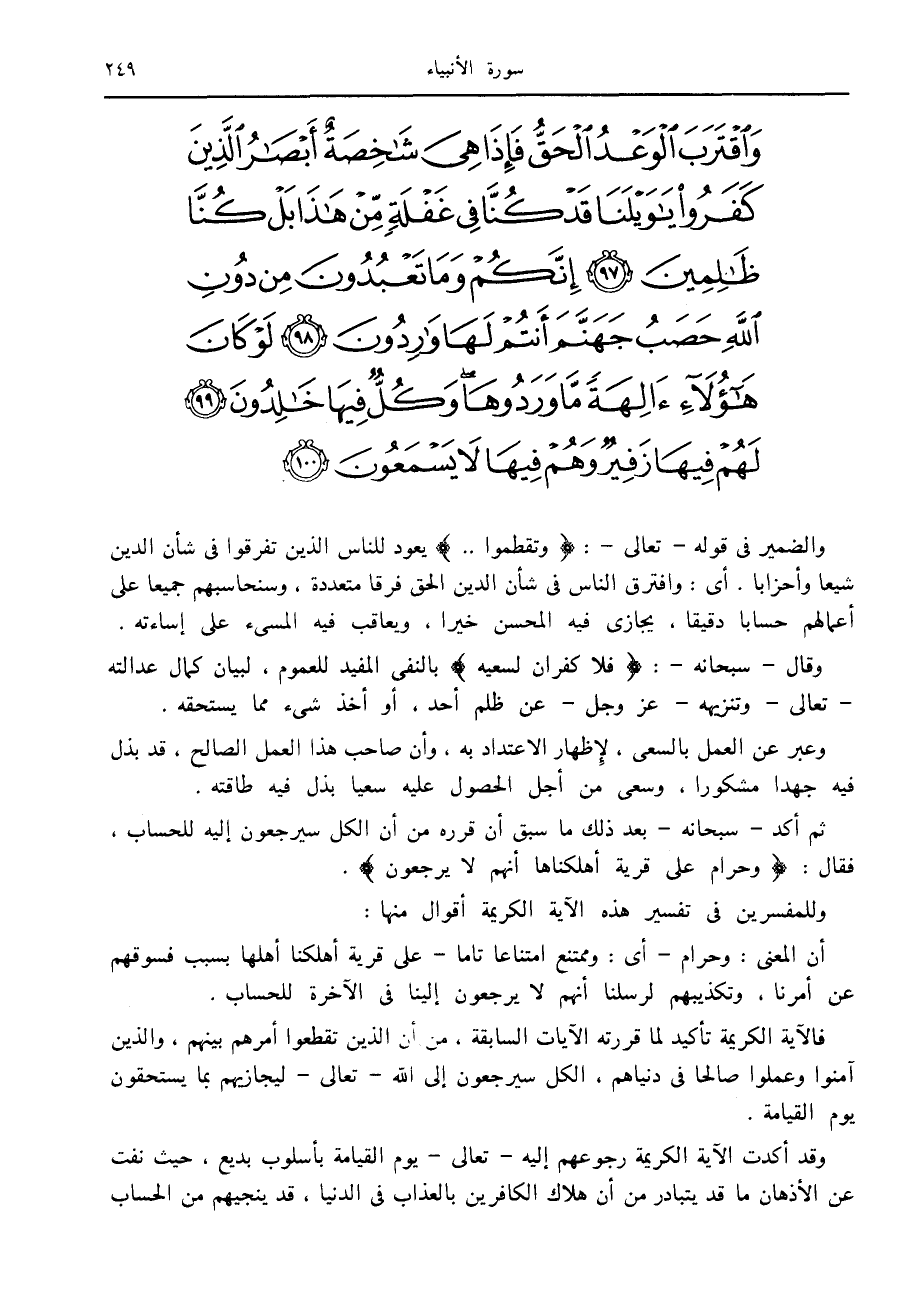 سورة الأنبياء ٢٤٩
وَٱقْتَرَبَ ٱلْوَعْدُ ٱلْحَقُّ فَإِذَا هِىَ شَـٰخِصَةٌ أَبْصَـٰرُ ٱلَّذِينَ
كَفَرُوا۟ يَـٰوَيْلَنَا قَدْ كُنَّا فِى غَفْلَةٍ مِّنْ هَـٰذَا بَلْ كُنَّا
ظَـٰلِمِينَ ٩٧ إِنَّكُمْ وَمَا تَعْبُدُونَ مِن دُونِ
ٱللَّهِ حَصَبُ جَهَنَّمَ أَنتُمْ لَهَا وَٰرِدُونَ ٩٨ لَوْ كَانَ
هَـٰٓؤُلَآءِ ءَالِهَةً مَّا وَرَدُوهَا ۖ وَكُلٌّ فِيهَا خَـٰلِدُونَ ٩٩
لَهُمْ فِيهَا زَفِيرٌ وَهُمْ فِيهَا لَا يَسْمَعُونَ ١٠٠
والضمير فى قوله – تعالى – : ﴿ وتقطموا .. ﴾ يعود للناس الذين تفرقوا فى شأن الدين
شيعا وأحزابا . أى : وافترق الناس فى شأن الدين الحق فرقا متعددة ، وسنحاسبهم جميعا على
أعمالهم حسابا دقيقا ، يجازى فيه المحسن خيرا ، ويعاقب فيه المسىء على إساءته .
وقال – سبحانه – : ﴿ فلا كفران لسعيه ﴾ بالنفى المفيد للعموم ، لبيان كمال عدالته
– تعالى – وتنزيهه – عز وجل – عن ظلم أحد ، أو أخذ شىء مما يستحقه .
وعبر عن العمل بالسعى ، لإظهار الاعتداد به ، وأن صاحب هذا العمل الصالح ، قد بذل
فيه جهدا مشكورا ، وسعى من أجل الحصول عليه سعيا بذل فيه طاقته .
ثم أكد – سبحانه – بعد ذلك ما سبق أن قرره من أن الكل سيرجعون إليه للحساب ،
فقال : ﴿ وحرام على قرية أهلكناها أنهم لا يرجعون ﴾ .
وللمفسرين فى تفسير هذه الآية الكريمة أقوال منها :
أن المعنى : وحرام – أى : وممتنع امتناعا تاما – على قرية أهلكنا أهلها بسبب فسوقهم
عن أمرنا ، وتكذيبهم لرسلنا أنهم لا يرجعون إلينا فى الآخرة للحساب .
فالآية الكريمة تأكيد لما قررته الآيات السابقة ، من أن الذين تقطعوا أمرهم بينهم ، والذين
آمنوا وعملوا صالحا فى دنياهم ، الكل سيرجعون إلى الله – تعالى – ليجازيهم بما يستحقون
يوم القيامة .
وقد أكدت الآية الكريمة رجوعهم إليه – تعالى – يوم القيامة بأسلوب بديع ، حيث نفت
عن الأذهان ما قد يتبادر من أن هلاك الكافرين بالعذاب فى الدنيا ، قد ينجيهم من الحساب